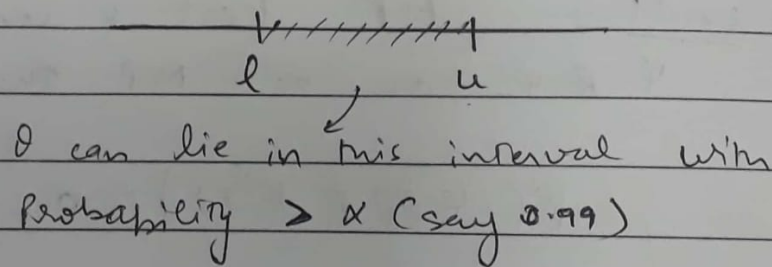 l u
θ can lie in this interval with
Probability > α (say 0.99)